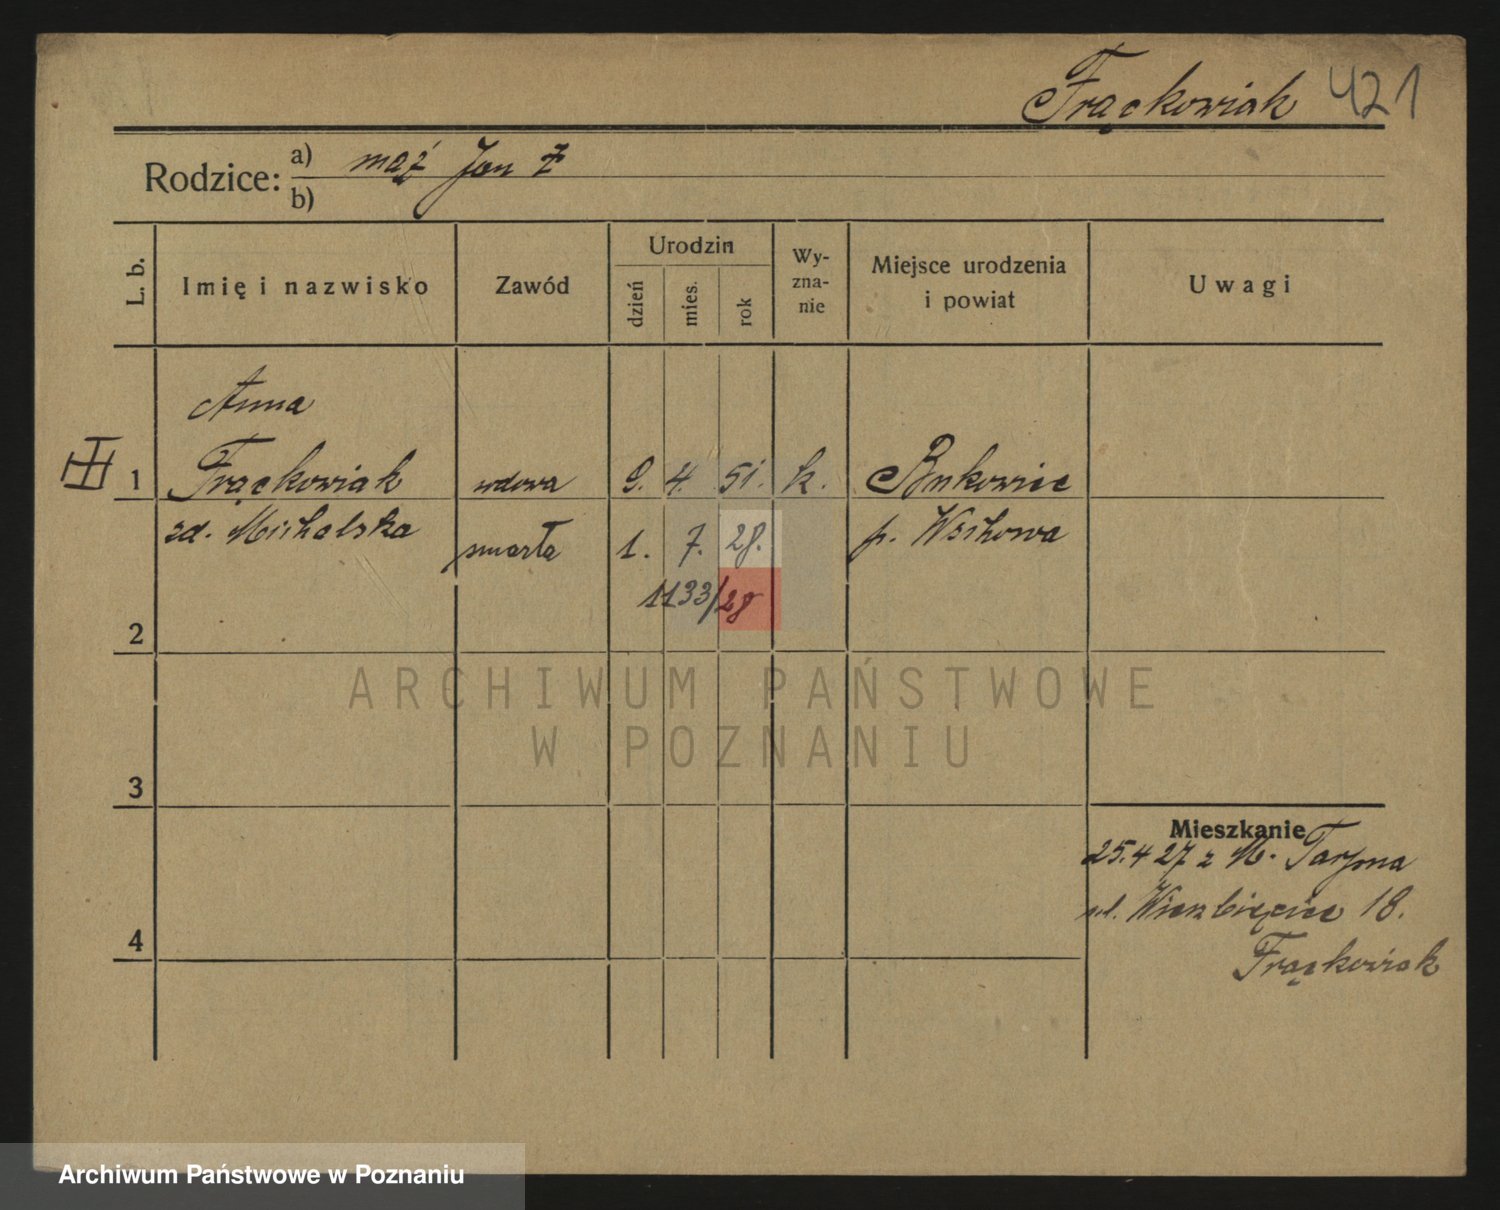 Frąckowiak 421
Rodzice: a) mąż Jan
b)
L. b.
Imię i nazwisko
Zawód
Urodzin
dzień
mies.
rok
Wy-
zna-
nie
Miejsce urodzenia
i powiat
Uwagi
Anna
1 Frąckowiak wdowa 9. 4. 51. k. Bukowiec
zd. Michalska zmarła 1. 7. 28. p. Wschowa
1133/28
2
ARCHIWUM PAŃSTWOWE
W POZNANIU
3
Mieszkanie
25.4 27 z M. Tarpna
ul. Wierzbięcice 18.
4
Frąckowiak
Archiwum Państwowe w Poznaniu